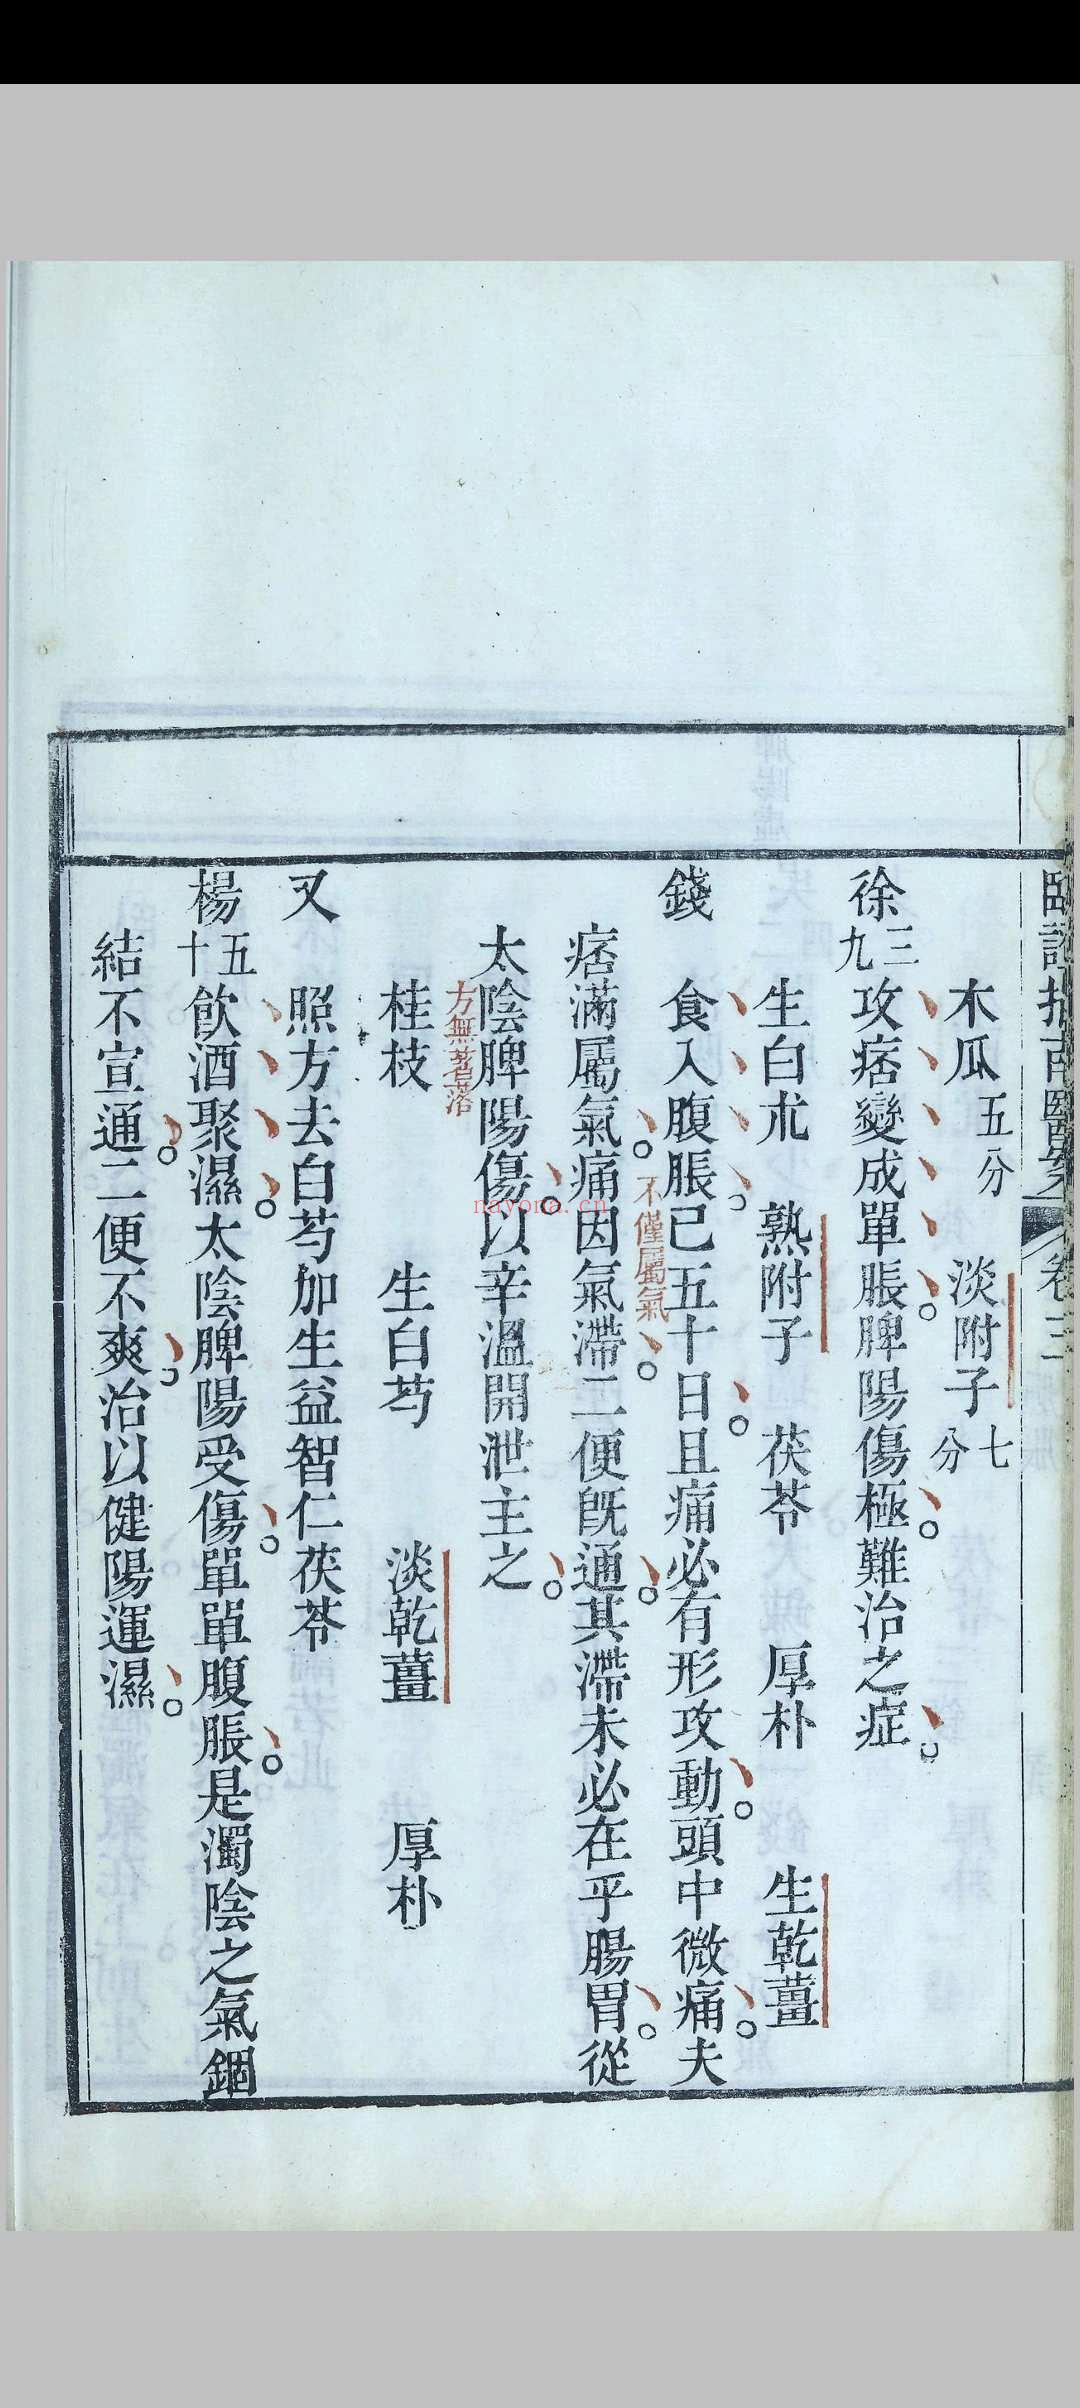 臨證指南醫案 卷三
木瓜五分 淡附子七分
徐三九 攻痞變成單脹脾陽傷極難治之症
生白朮 熟附子 茯苓 厚朴 生乾薑
錢 食入腹脹已五十日且痛必有形攻動頭中微痛夫
痞滿屬氣痛因氣滯二便旣通其滯未必在乎腸胃從
不僅屬氣
太陰脾陽傷以辛溫開泄主之
方無著落
桂枝 生白芍 淡乾薑 厚朴
又 照方去白芍加生益智仁茯苓
楊五十 飮酒聚濕太陰脾陽受傷單單腹脹是濁陰之氣錮
結不宣通二便不爽治以健陽運濕
nayona.cn